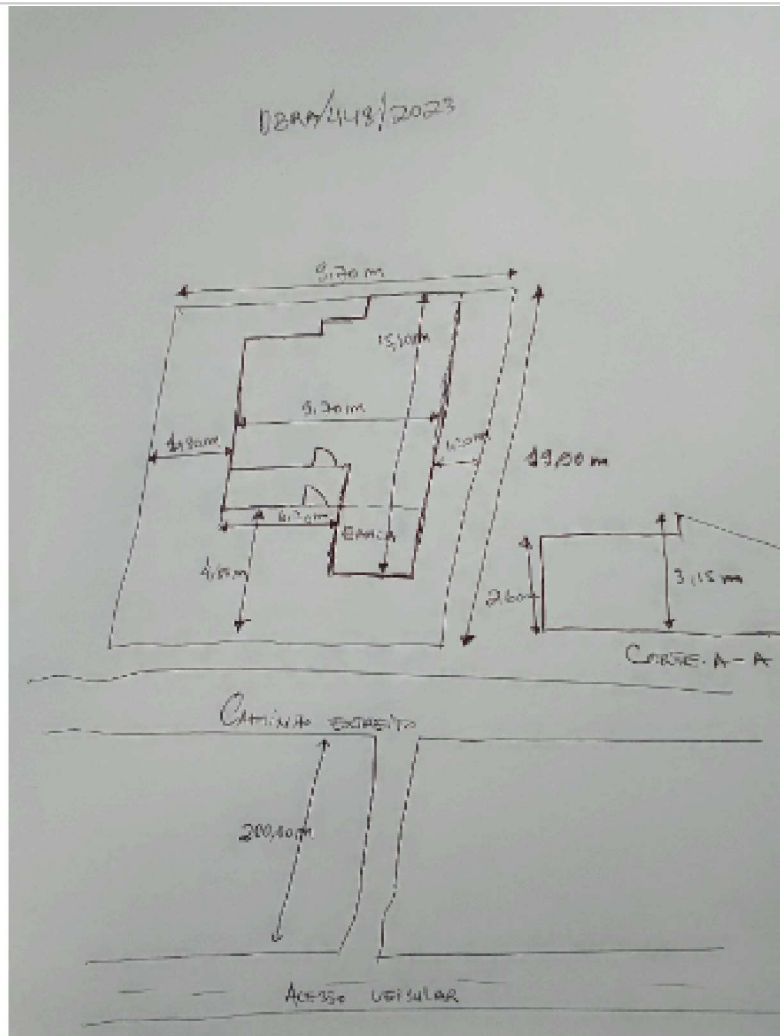 OBRA/448/2023
9,70 m
15,20m
9,70m
1,80m
1,20m
19,00 m
6,20m
4,80m
3,15 m
2,60
CORTE-A-A
CAMINHO ESTREITO
200,00m
ACESSO VEICULAR